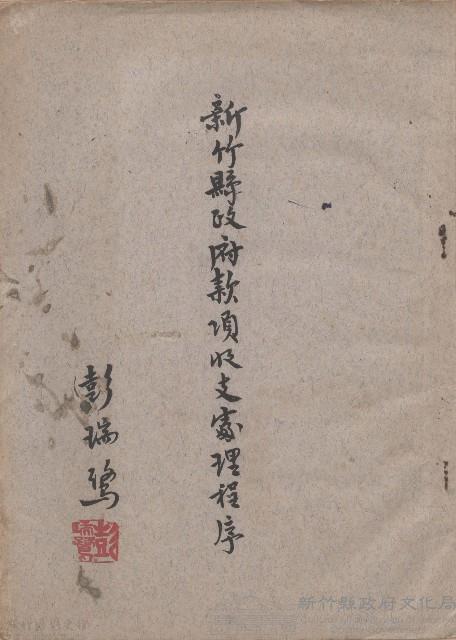 新竹縣政府款項收支處理程序
彭瑞鷺
新竹縣政府文化局